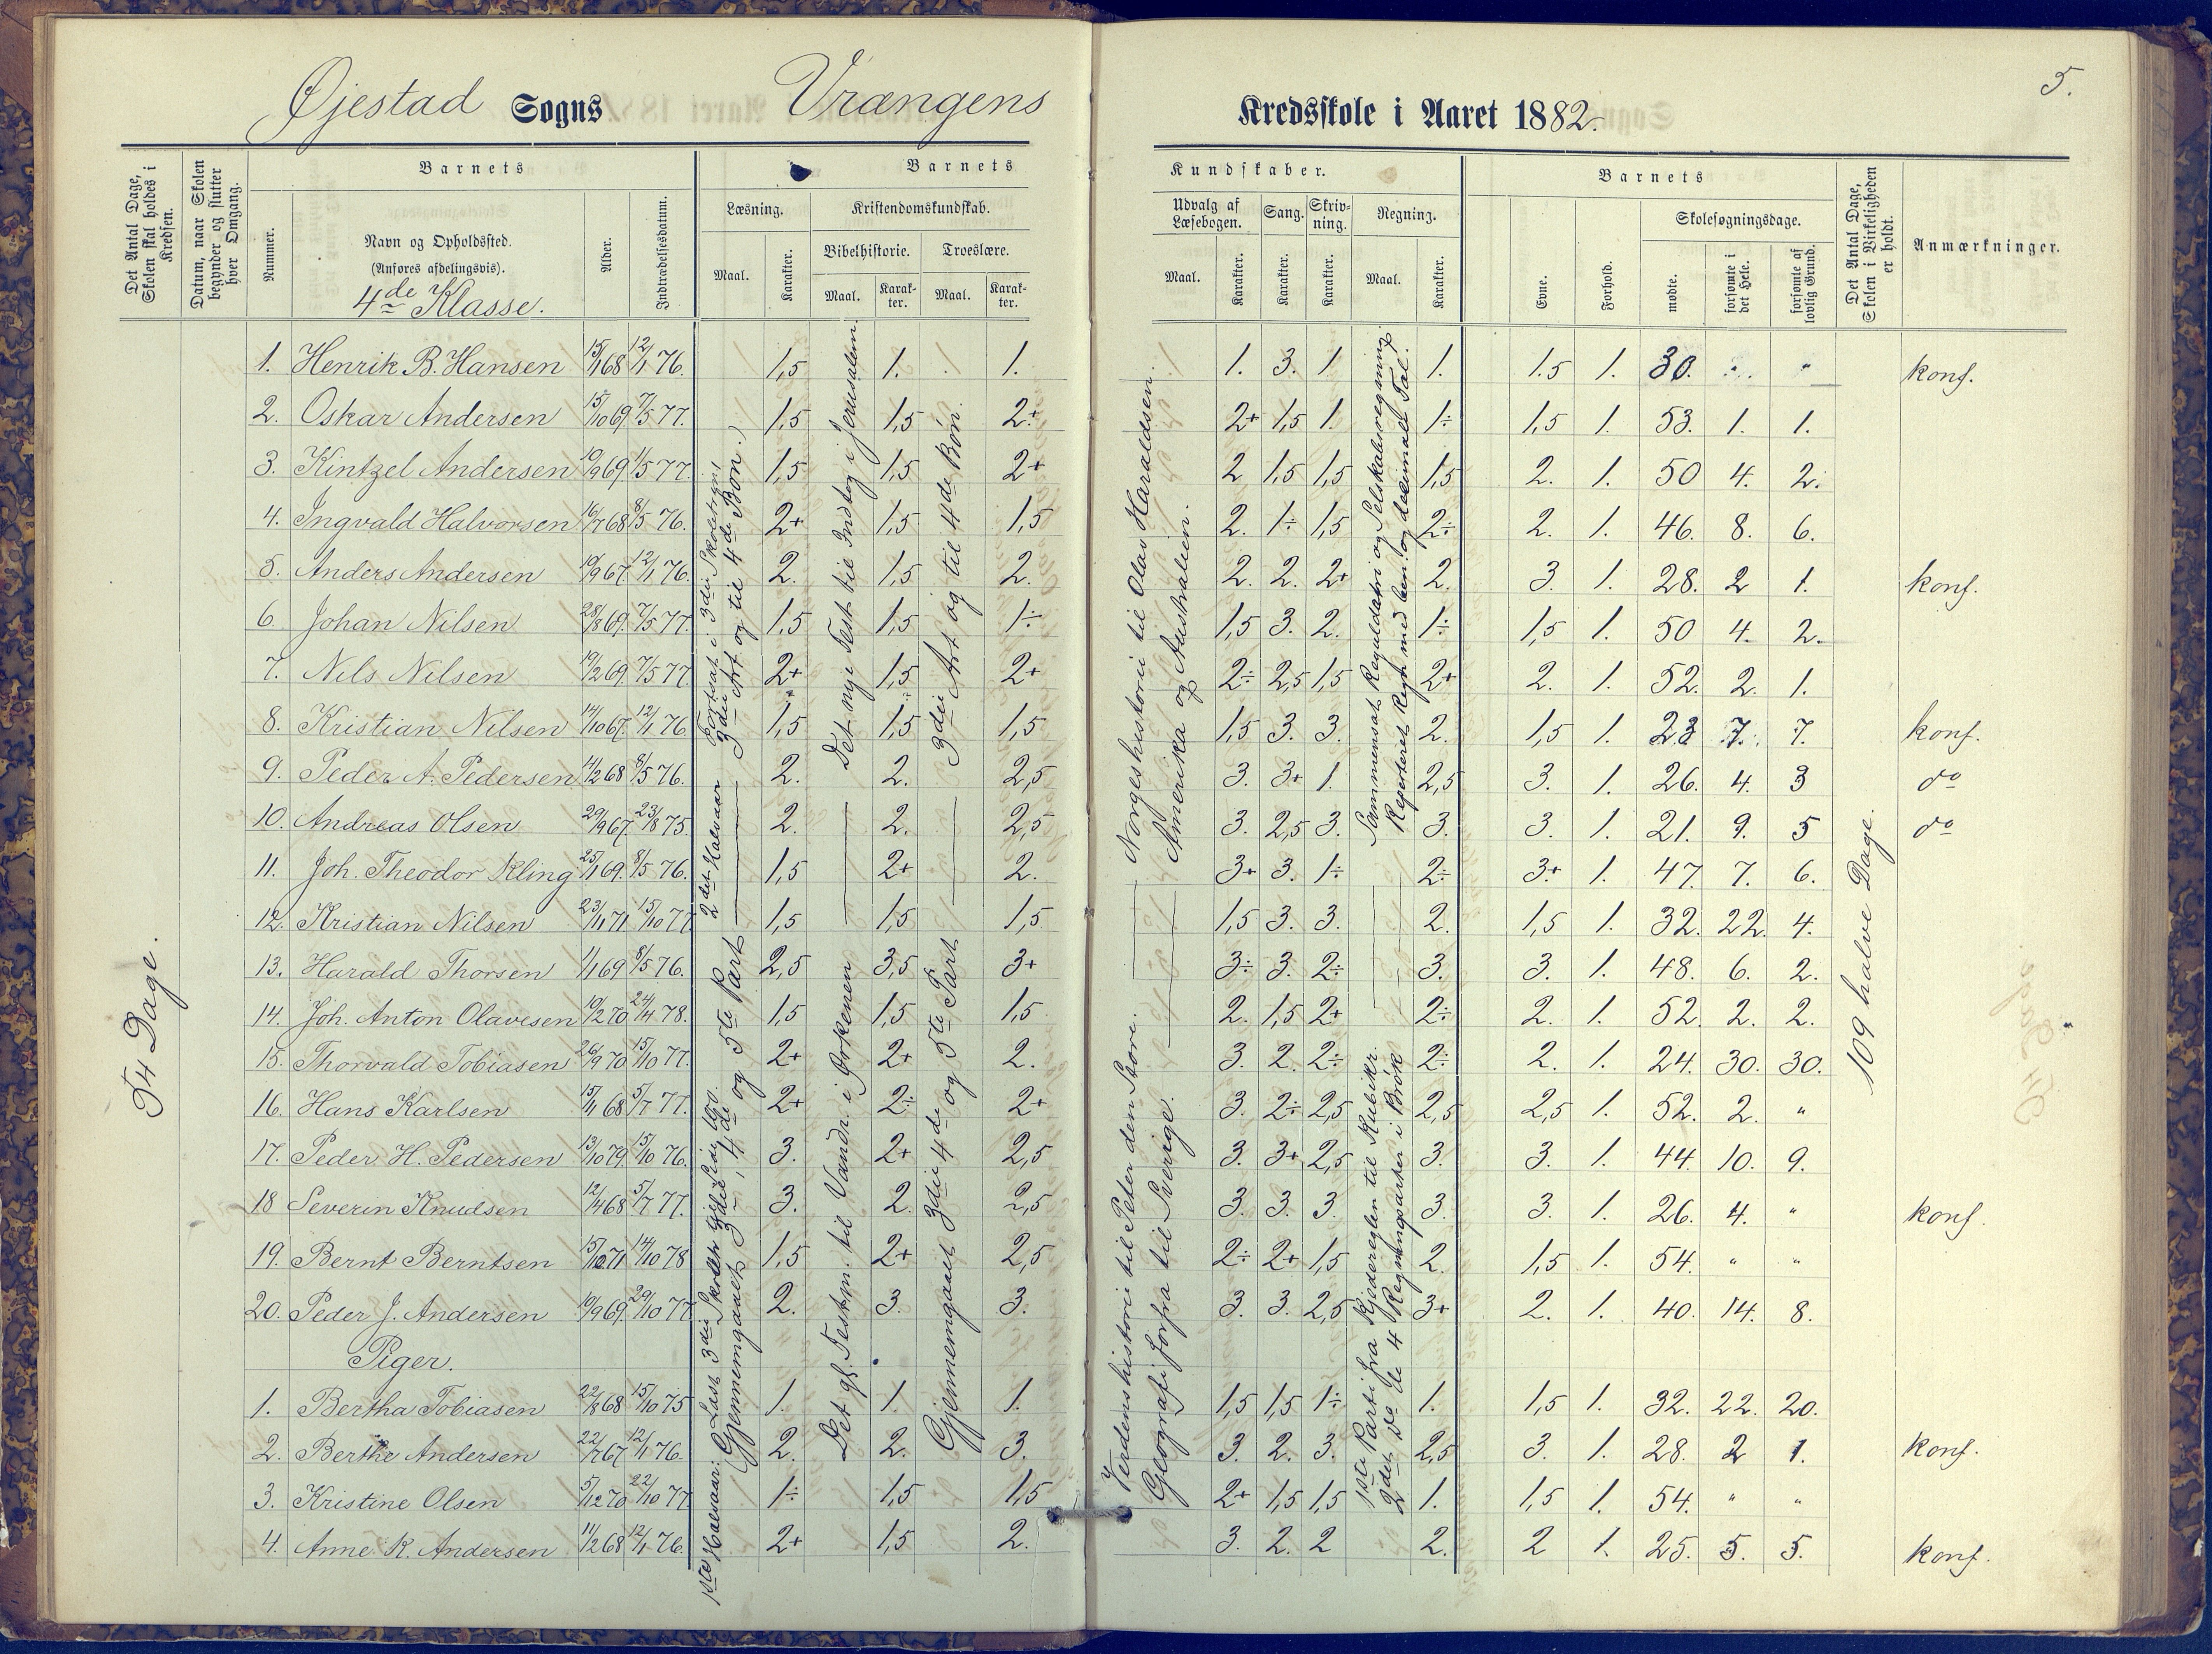 5.
Øjestad Sogns Vrængens Kredsskole i Aaret 1882.
Det Antal Dage, Skolen skal holdes i Kredsen.
Datum, naar Skolen begynder og slutter hver Omgang.
Nummer.
Barnets
Navn og Opholdssted.
(Anføres afdelingsvis).
4de Klasse.
Alder.
Indtrædelsesdatum.
Barnets Kundskaber.
Læsning.
Maal.
Karakter.
Kristendomskundskab.
Bibelhistorie.
Maal.
Karakter.
Troeslære.
Maal.
Karakter.
Udvalg af Læsebogen.
Maal.
Karakter.
Sang.
Karakter.
Skrivning.
Karakter.
Regning.
Maal.
Karakter.
Barnets
Evne.
Forhold.
Skolesøgningsdage.
mødte.
forsømte i det Hele.
forsømte af lovlig Grund.
Det Antal Dage, Skolen i Virkeligheden er holdt.
Anmærkninger.
1. Henrik B. Hansen 15/1 68 12/1 76. 1,5 1. 1. 1. 3. 1 1. 1.5 1. 30. " konf.
2. Oskar Andersen 15/10 69. 7/5 77. 1,5 1,5 2+ 2+ 1,5 1. 1÷ 1,5 1. 53. 1. 1.
3. Kintzel Andersen 10/9 69 1/5 77. 1,5 1,5 2+ 2 1,5 1,5 1,5 2. 1. 50 4. 2.
4. Ingvald Halvorsen 16/7 68 8/5 76. 2+ 1,5 1,5 2. 1÷ 1,5 2÷ 2. 1. 46. 8. 6.
5. Anders Andersen 19/9 67. 12/1 76. 2. 1,5 2. 2. 2. 2+ 2. 3. 1. 28. 2 1. konf.
6. Johan Nilsen 28/8 69. 7/5 77. 1,5 1,5 1÷ 1,5 3. 2. 1÷ 1,5 1. 50 4. 2.
7. Nils Nilsen 19/2 69. 7/5 77 2+ 1,5 2+ 2÷ 2,5 1,5 2+ 2. 1. 52. 2. 1.
8. Kristian Nilsen 14/10 67. 12/1 76. 1,5 1,5 1,5 1,5 3. 3. 2. 1,5 1. 23 7. 7. konf.
9. Peder A. Pedersen 4/2 68 8/5 76. 2. 2. 2,5 3. 3+ 1. 2,5 3. 1. 26. 4. 3 do
10. Andreas Olsen 29/9 67. 23/8 75. 2. 2. 2,5 3. 2,5 3. 3. 3. 1. 21. 9. 5 do
11. Joh. Theodor Kling 25/1 69. 8/5 76. 1,5 2+ 2. 3+ 3. 1÷ 2÷ 3+ 1. 47. 7. 6.
12. Kristian Nilsen 23/11 71 15/10 77 1,5 1,5 1,5 1,5 3. 3. 2. 1,5 1. 32. 22. 4.
13. Harald Thorsen 1/1 69 8/5 76. 2,5 3,5 3+ 3÷ 3. 2÷ 3. 3. 1. 48. 6. 2.
14. Joh. Anton Olavesen 19/2 70 24/4 78. 1,5 1,5 1,5 2. 1,5 2+ 2÷ 2. 1. 52. 2. 2.
15. Thorvald Tobiasen 26/9 70 15/10 77. 2+ 2+ 2. 3. 2. 2÷ 2÷ 2. 1. 24. 30. 30.
16. Hans Karlsen 15/1 68 5/7 77. 2+ 2÷ 2+ 3. 2÷ 2,5 2,5 2,5 1. 52. 2. "
17. Peder H. Pedersen 13/10 79. 15/10 76. 3. 2+ 2,5 3. 3+ 2,5 3. 3. 1. 44. 10. 9.
18 Severin Knudsen 12/4 68 5/7 77. 3. 2. 2,5 3. 3. 3. 3. 3. 1. 26. 4. " konf.
19. Bernt Berntsen 15/10 71 14/10 78 1,5 2+ 2,5 2÷ 2+ 1,5 2. 1,5 1. 54. " "
20. Peder J. Andersen 19/9 69. 29/10 77. 2. 3. 3. 3. 3. 2,5 3+ 2. 1. 40. 14. 8.
Piger.
1. Bertha Tobiasen 22/8 68 15/10 75 1. 1. 1. 1,5 1,5 1÷ 1. 1,5 1. 32. 22. 20.
2. Berthe Andersen 22/7 67 12/1 76. 2. 2. 3. 3. 2. 3. 2,5 3. 1. 28. 2 1. konf.
3. Kristine Olsen 5/12 70 22/10 77 1÷ 1,5 1,5 2+ 1,5 1,5 1. 1,5 1. 54. " "
4. Anne K. Andersen 11/2 68 12/1 76. 2+ 1,5 2. 3. 2. 2 2. 2 1. 25. 5. 5. konf.
54 Dage.
1ste Halvaar: Læst 3die Skoletr.
2det Halvaar Fortsat i 3die Skoletrin
Gjennemgaaet 3die, 4de og 5te Part
3die Art og til 4de Bøn.)
Det gl. Testm. til Vandr. i Ørkenen
Det nye Test til Indtog i Jerusalem.
Gjennemgaaet 3die 4de og 5te Part
3die Art og til 4de Bøn.
Verdenshistorie til Peter den Store.
Norgeshistorie til Olav Haraldsen.
Geografi forfra til Sverige.
Amerika og Australien.
1ste Parti fra Kjæderegelen til Kubikr.
Sammensat Reguladetri og Selskabsregning
2det Do. de 4 Regningsarter i Brøk
Repeteret Regn. med ben. og decimalt Tal.
109 halve Dage.